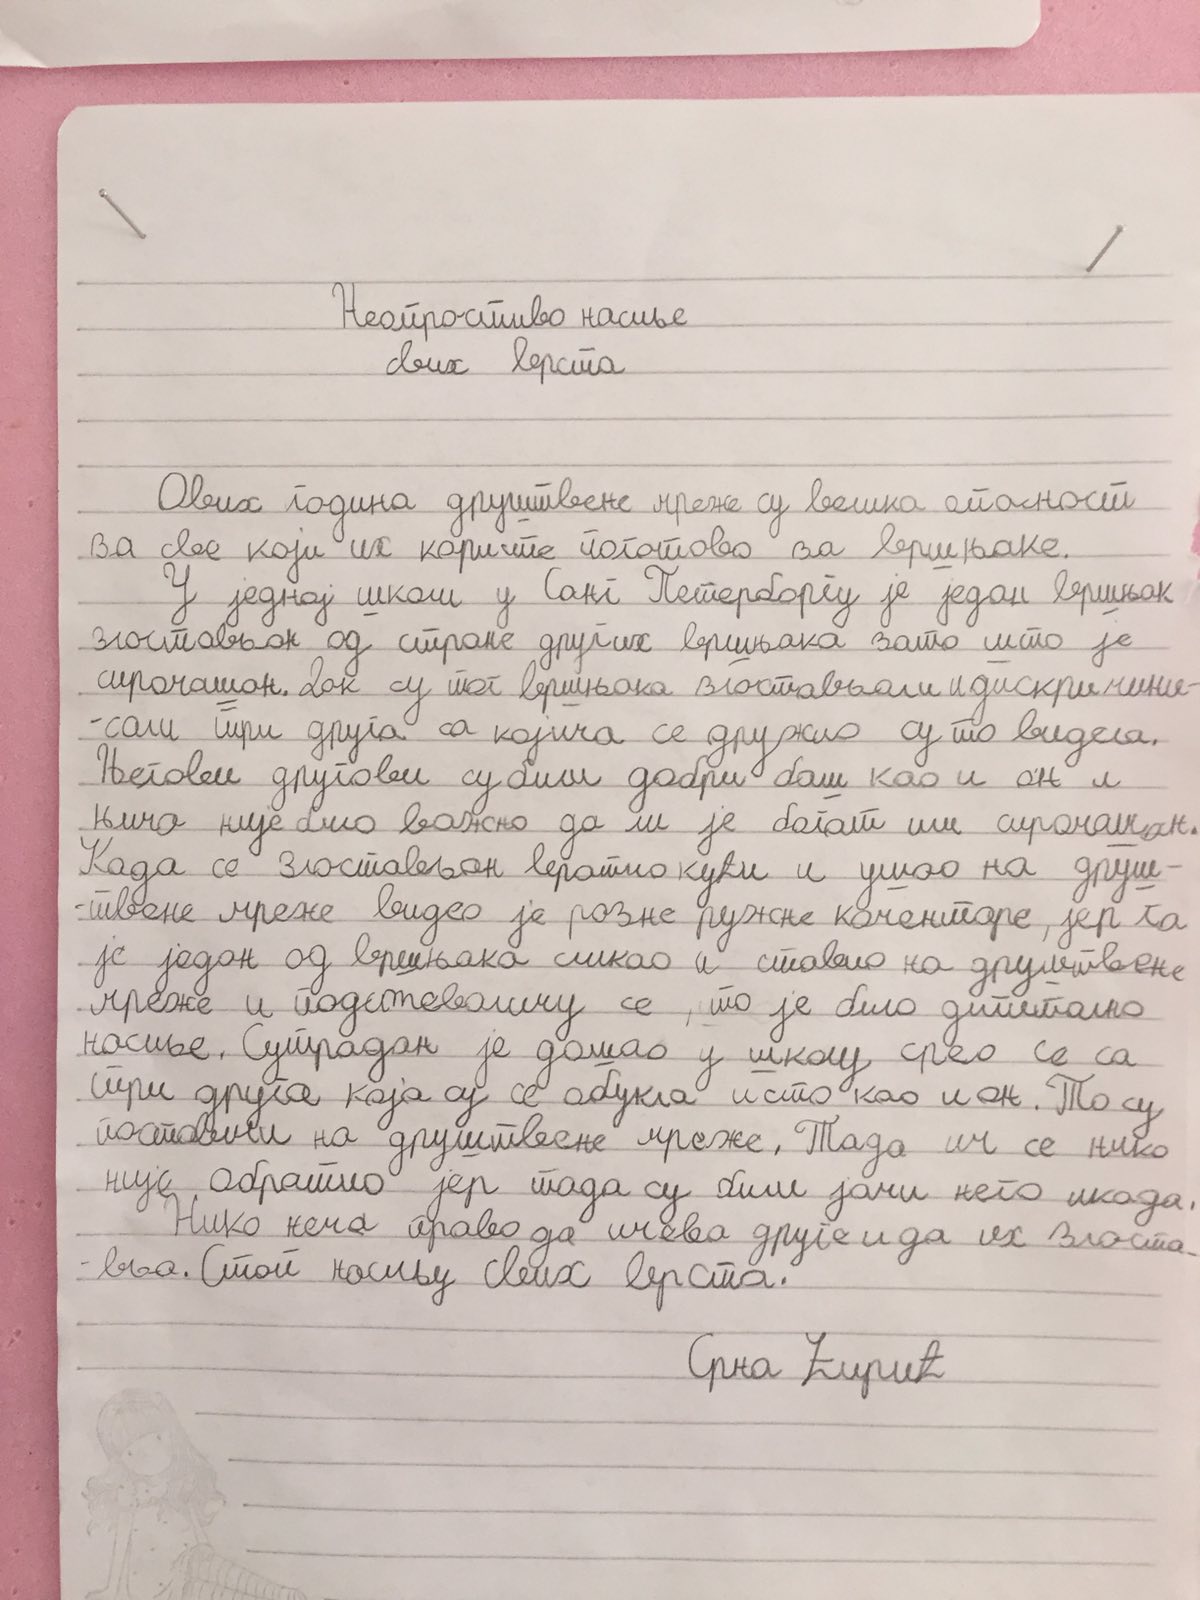 Неопростиво насиље
свих врста
Ових година друштвене мреже су велика опасност
за све који их користе поготово за вршњаке.
У једној школи у Санг Петерборгу је један вршњак
злостављан од стране других вршњака зато што је
сиромашан. Док су тог вршњака злостављали и дискримини-
-сали три друга са којима се дружио су то видела.
Његови другови су били добри баш као и он и
њима није било важно да ли је богат или сиромашан.
Када се злостављан вратио кући и ушао на друш-
-твене мреже видео је разне ружне коментаре, јер га
је један од вршњака сликао и ставио на друштвене
мреже и подсмевали му се, то је било дигитално
насиље. Сутрадан је дошао у школу срео се са
три друга која су се обукла исто као и он. То су
поставили на друштвене мреже. Тада им се нико
није обратио јер тада су били јачи него икада.
Нико нема право да исмева друге и да их злоста-
-вља. Стоп насиљу свих врста.
Срна Ћирић